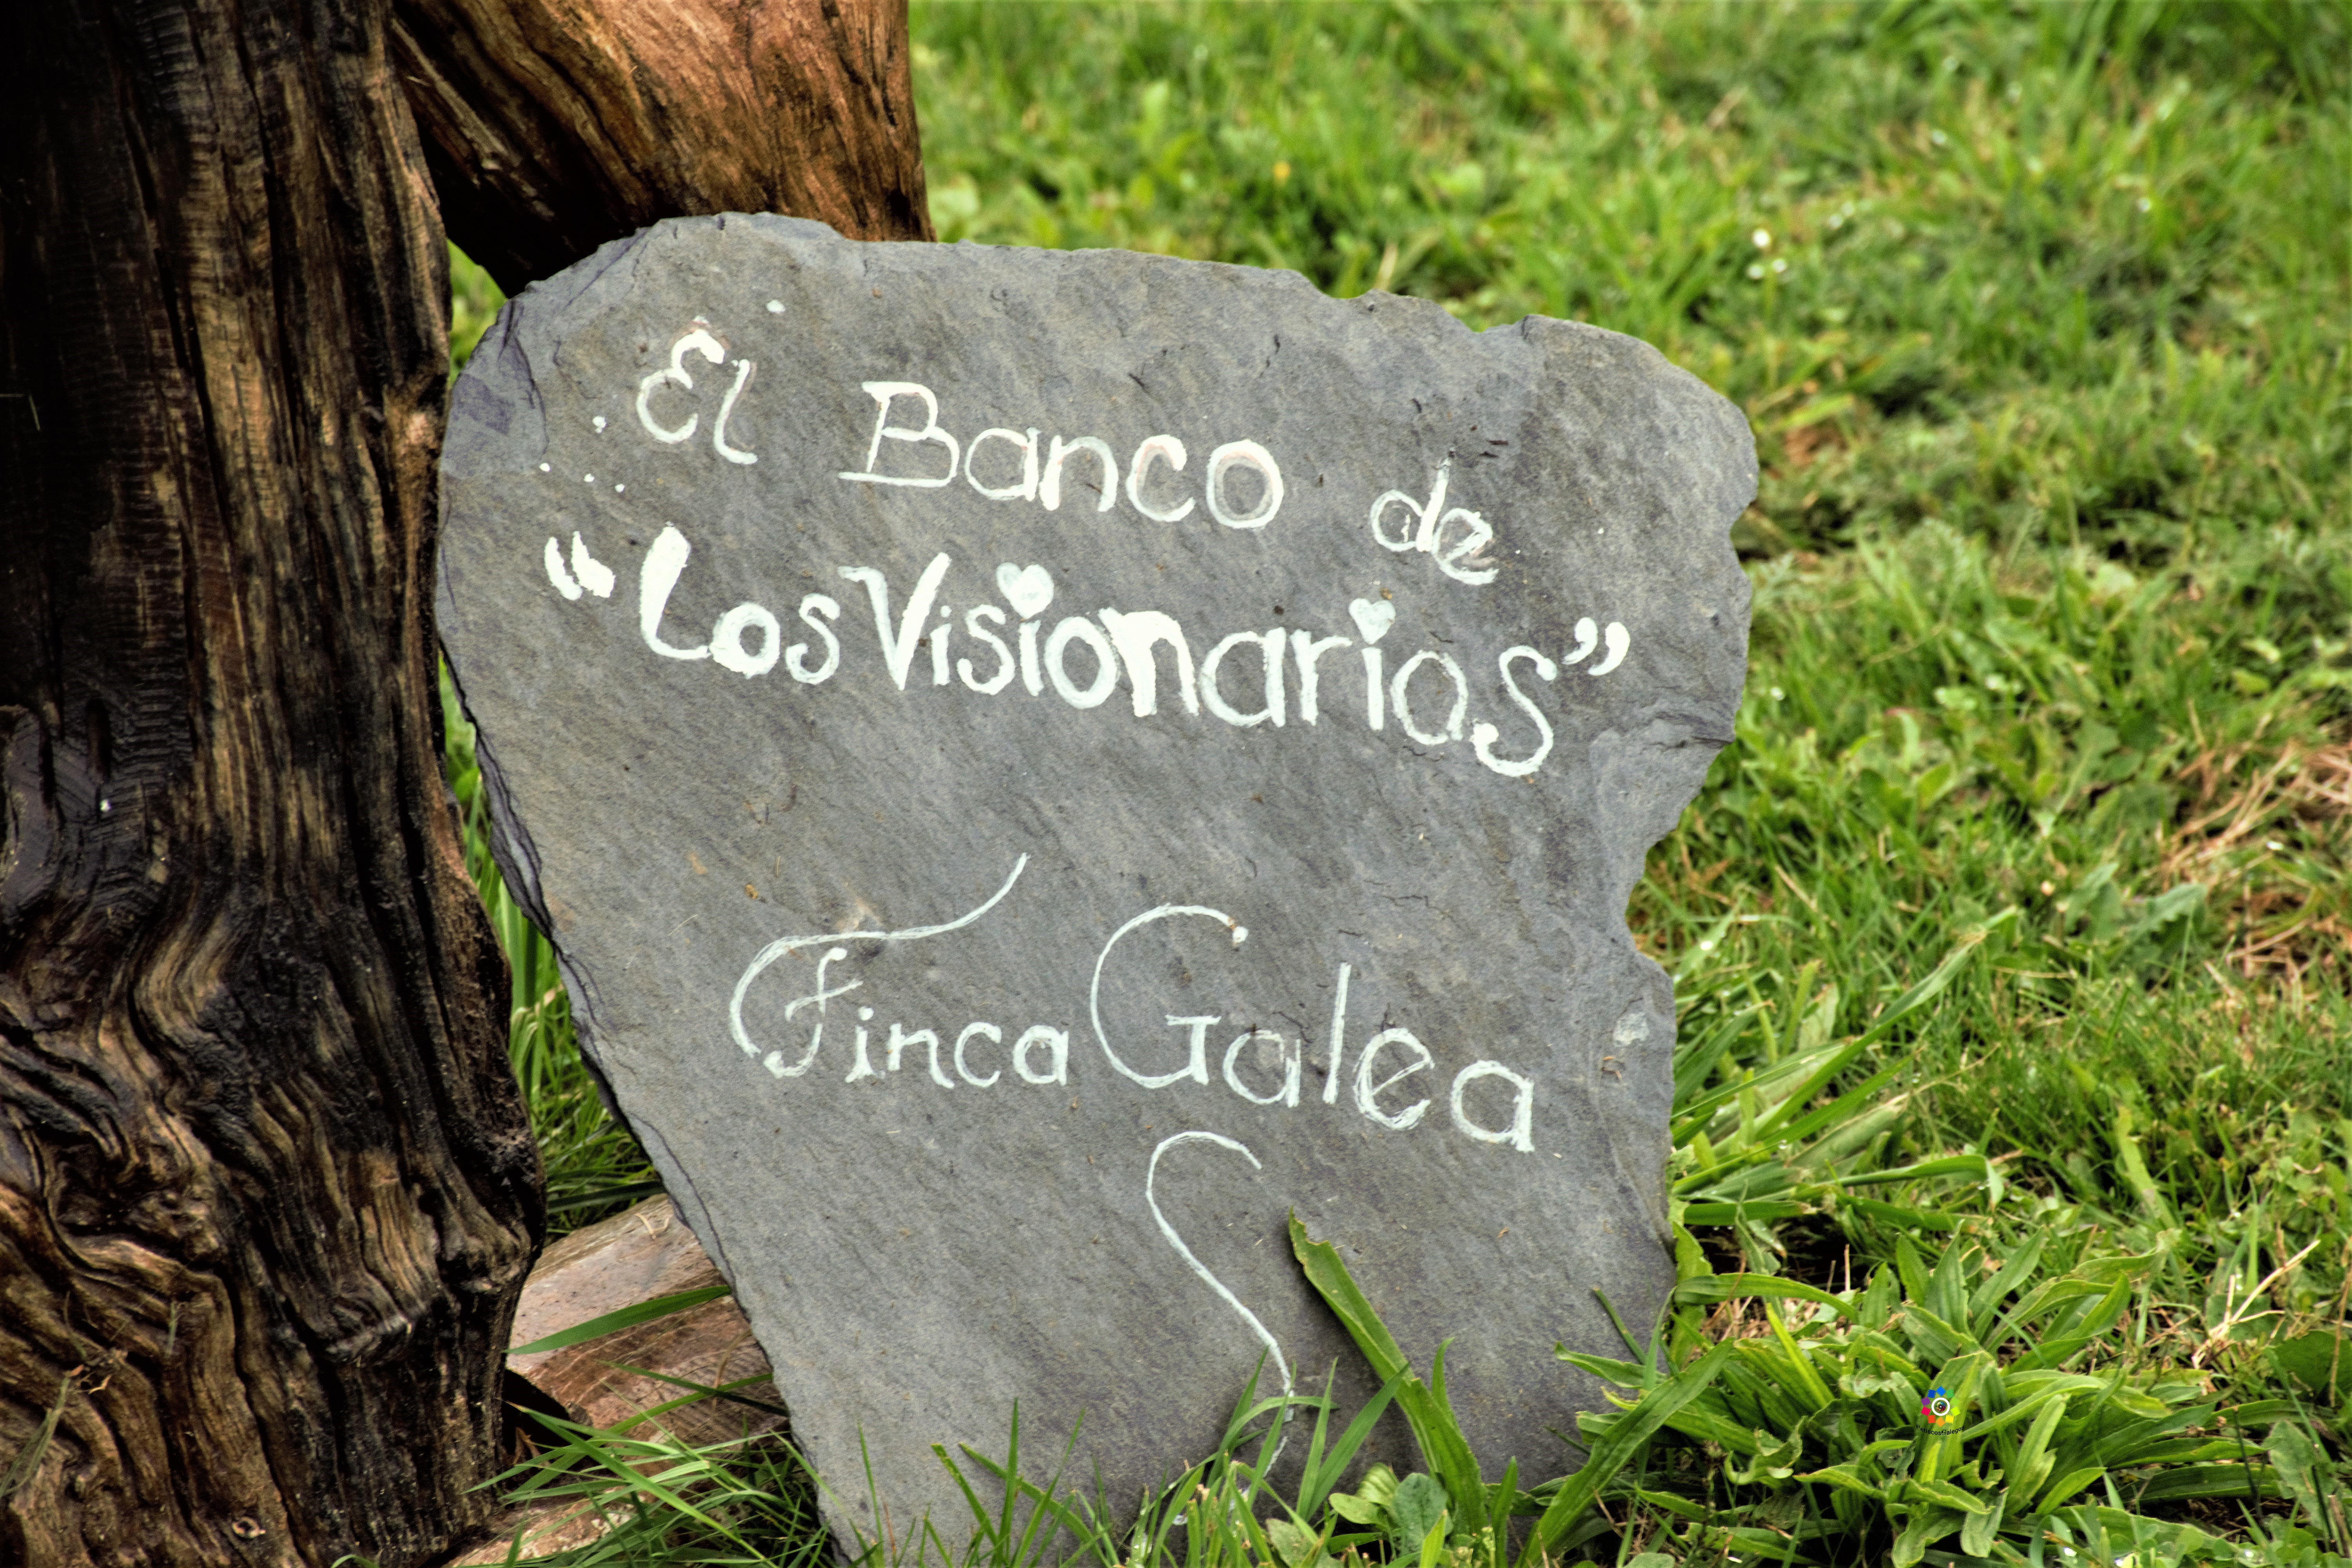 El Banco de
“Los Visionarios”
Finca Galea